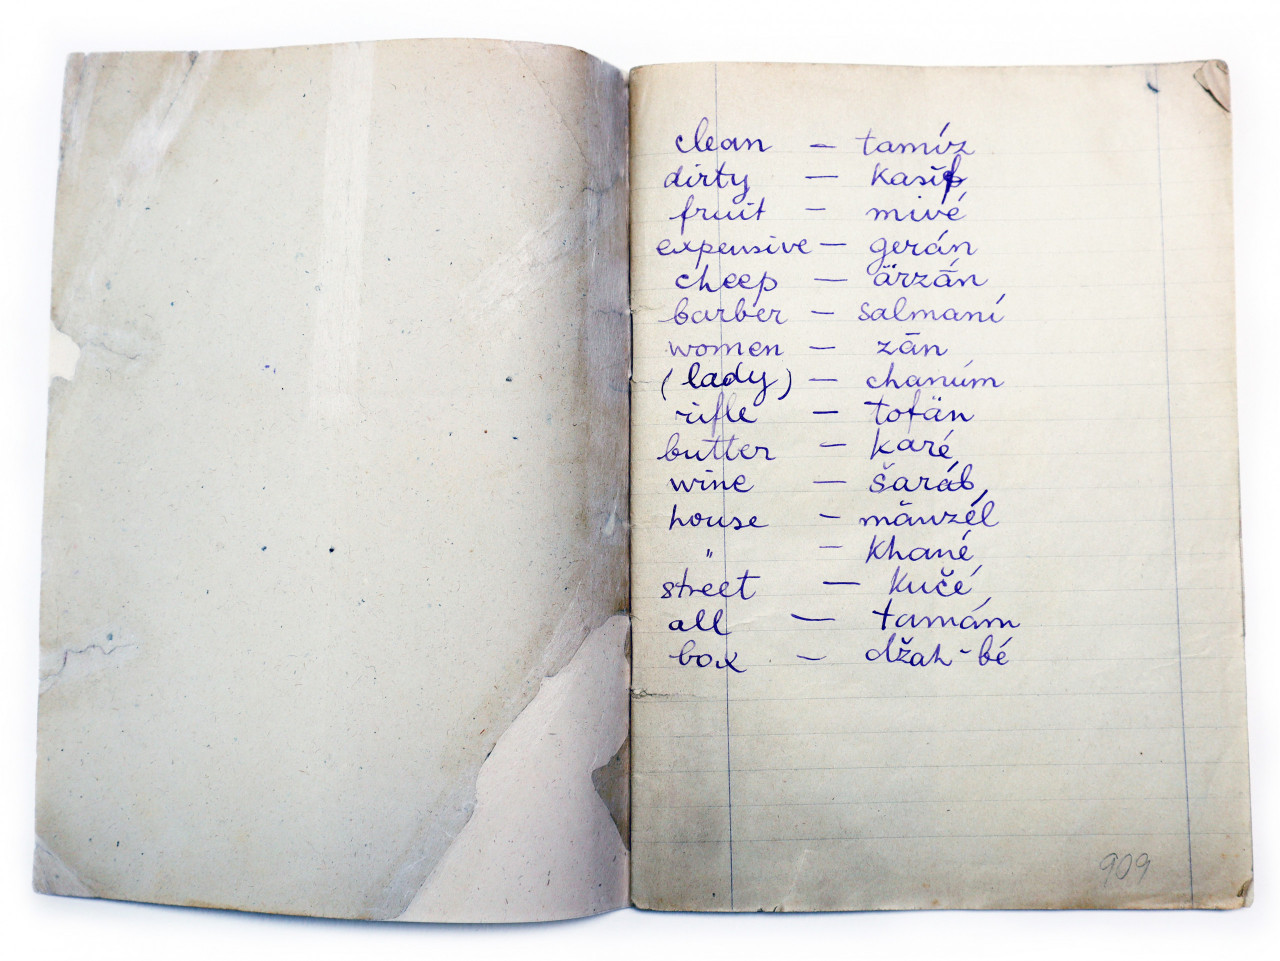 clean – tamíz
dirty – kasíf
fruit – mivé
expensive – gerán
cheep – ärzān
barber – salmaní
women – zān
(lady) – chanúm
rifle – tofän
butter – karé
wine – šaráb
house – mänzél
" – khané
street – kučé
all – tamám
box – džah-bé
909